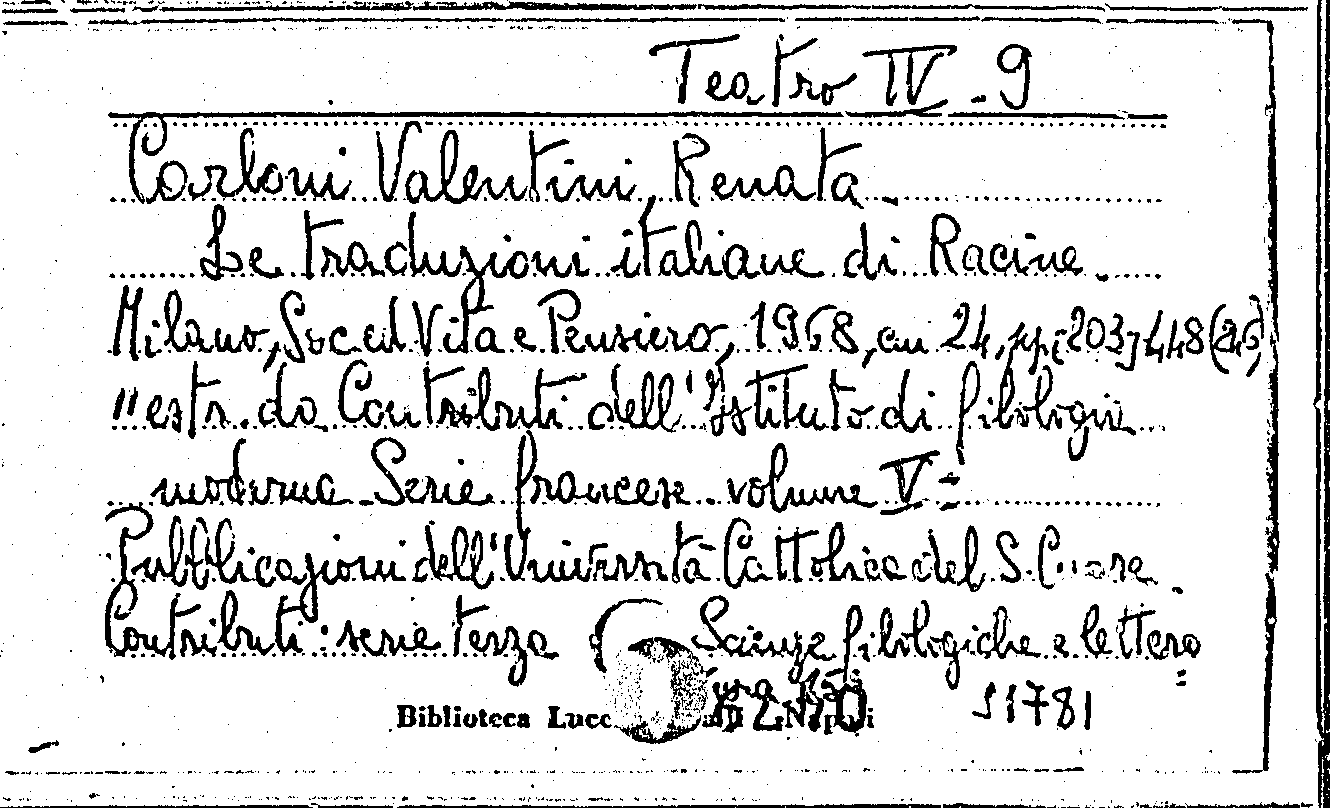 Teatro IV - 9
Carloni Valentini, Renata.
Le traduzioni italiane di Racine.
Milano, Soc. ed Vita e Pensiero, 1968, cm 24, pp. 203-448 (246)
estr. da Contributi dell'Istituto di filologia
moderna Serie francese volume V=
Pubblicazioni dell'Università Cattolica del S. Cuore.
Contributi: serie terza Scienze filologiche e lettera=
tura
Biblioteca Napoli 51781